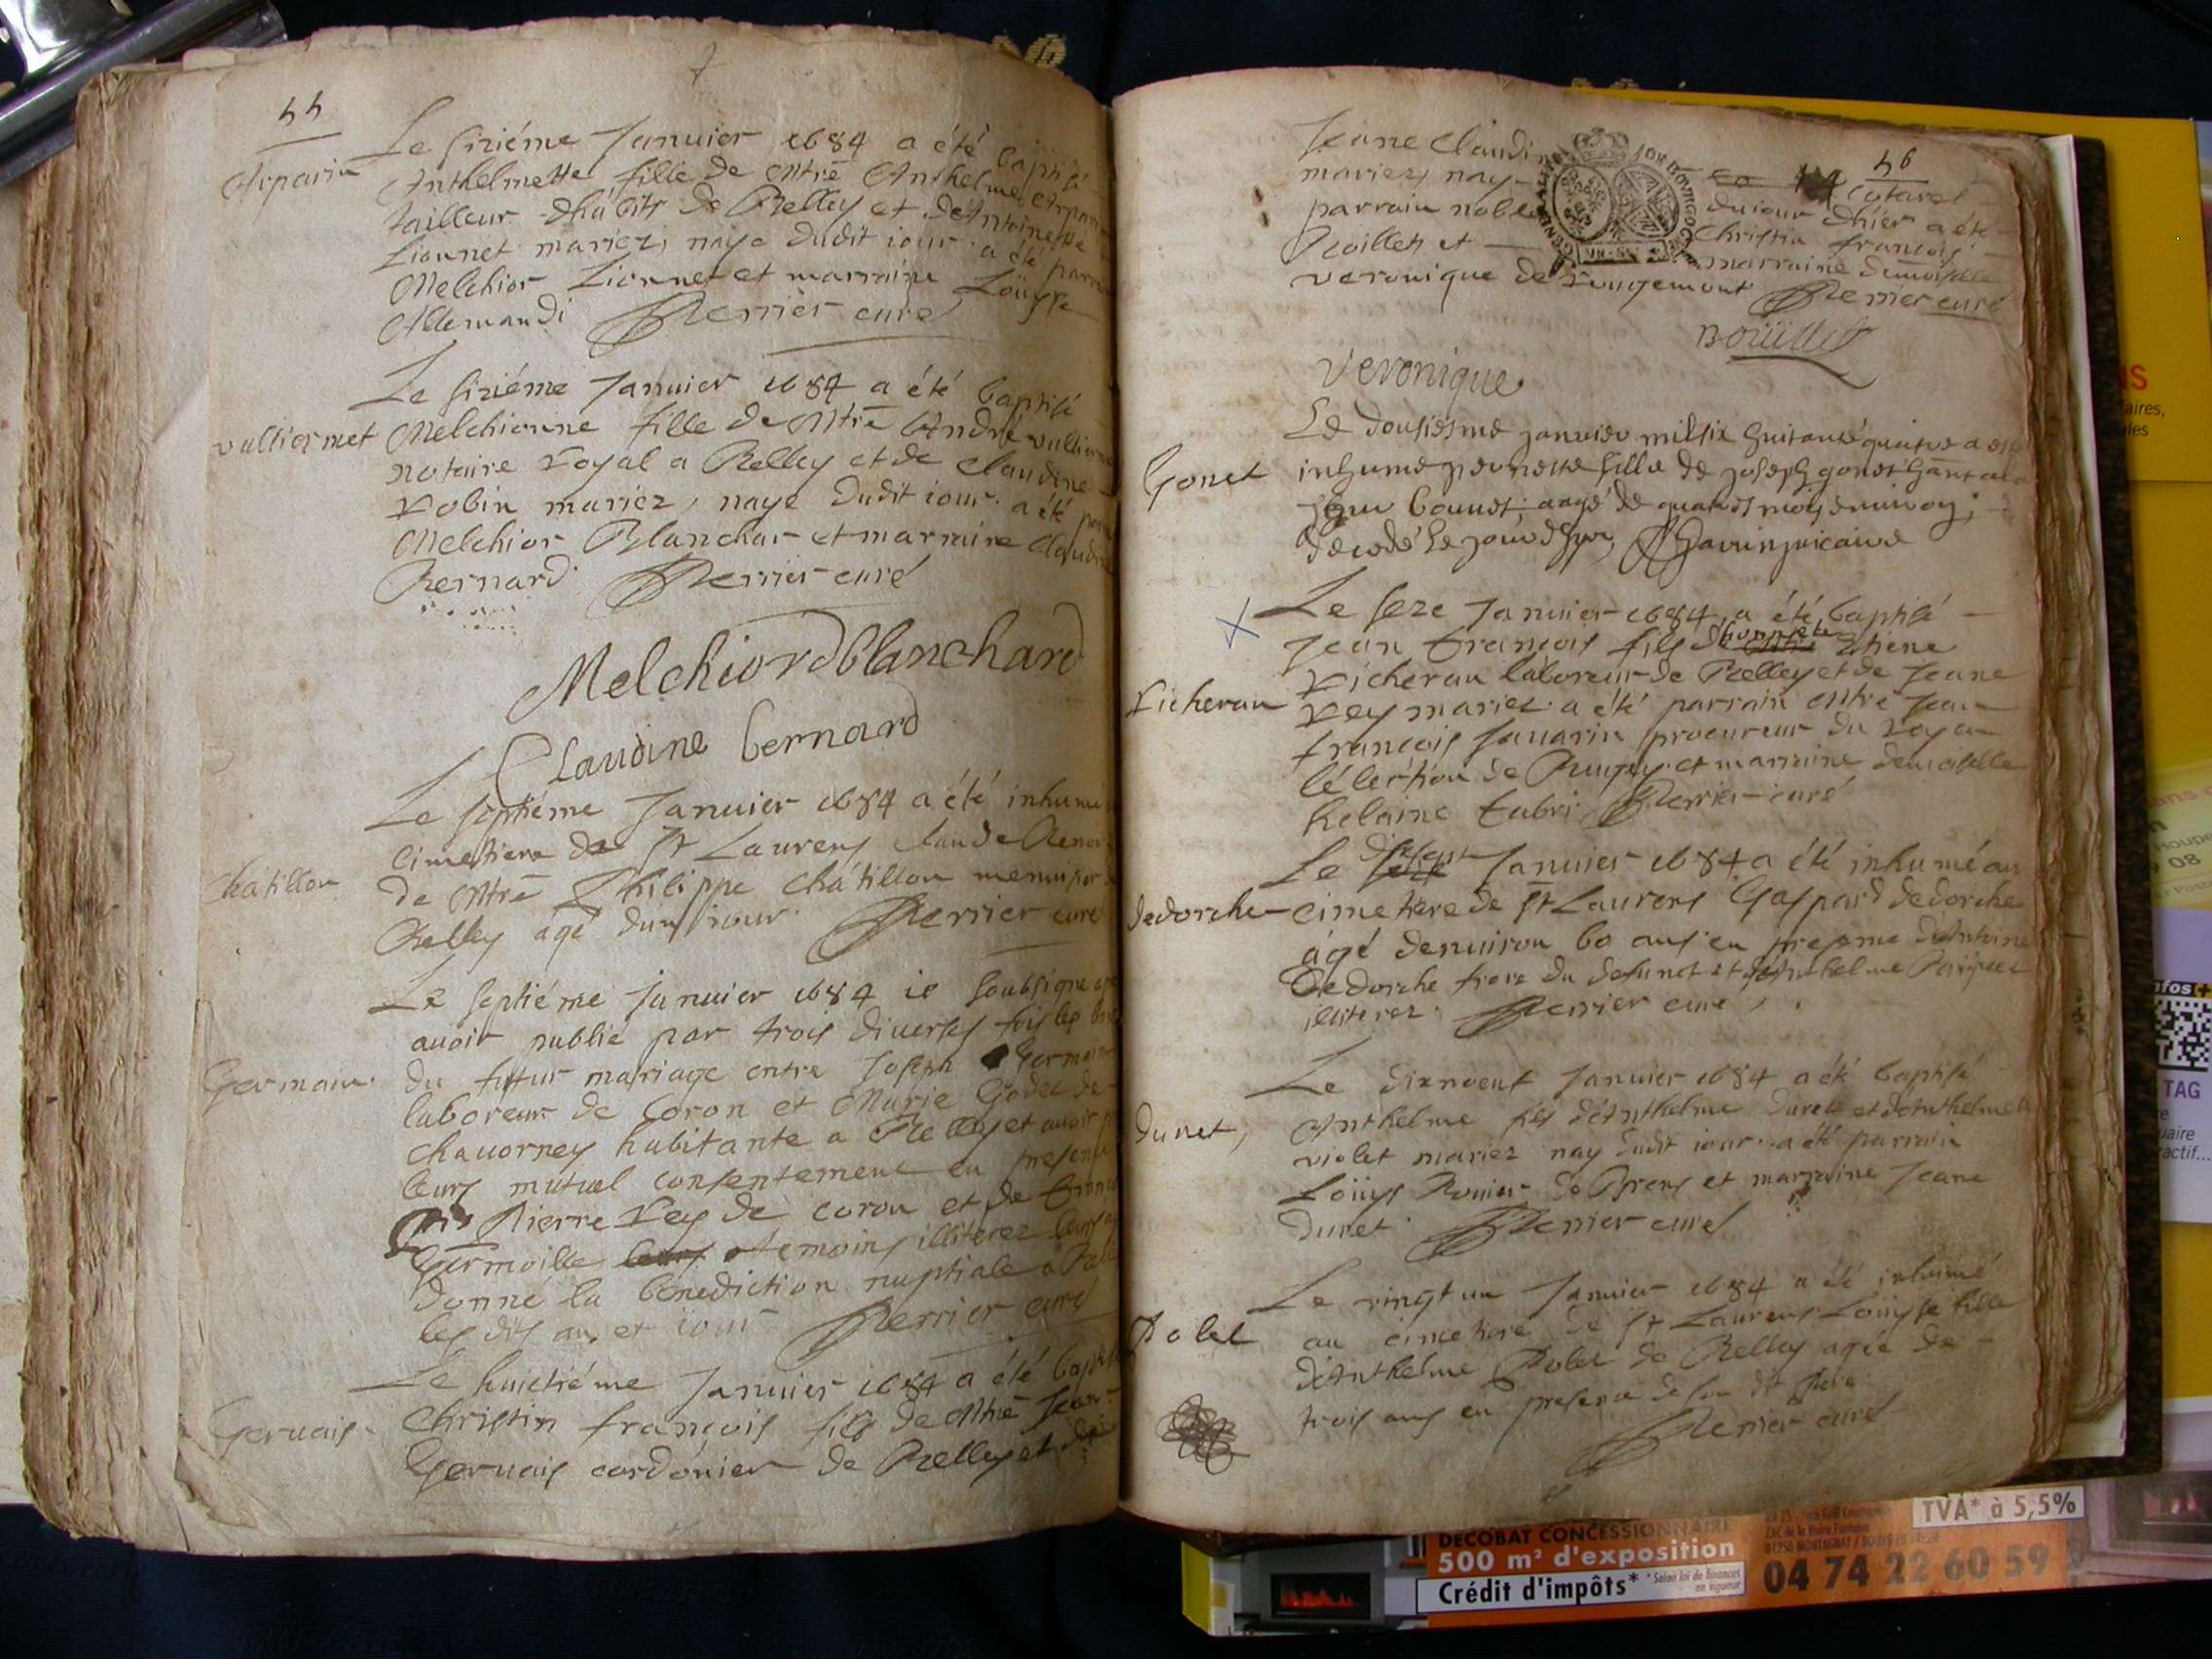 44
Le siziéme Januier 1684 a été baptisé
Arparin
Anthelmette fille de Mtre Anthelme Arparin
tailleur d'habits de Belley et d'Antoinette
Lionnet mariez, naye dudit iour a été parrain
Melchior Lionnet et marraine Loüyse
Allemandi Perrier curé
Le siziéme Januier 1684 a été baptisé
vulliermet
Melchionne fille de Mtre André vulliermet
notaire royal a Belley et de claudine
robin mariez, naye dudit iour a été
Melchior Blanchar et marraine Claudine
Bernard Perrier curé
Melchiord blanchard
Claudine bernard
Le septiéme Januier 1684 a été inhumé
cimetiere de St Laurens Claude
Chátillon
de Mtre Philippe Chátillon menuisier
Belley agé dun iour Perrier curé
Le septiéme Januier 1684 ie soubsigné
auoir publié par trois diuerses fois les
Germain
du futur mariage entre Joseph Germain
laboreur de Coron et Marie Godet de
chauorney habitante a Belley et auoir
leurs mutuel consentement en presence
Pierre Rey de coron et de
Germoille leurs temoins illiterez leurs
donné la benediction nuptiale a
les dits an, et iour Perrier curé
Le huictiéme Januier 1684 a été baptisé
Christin françois fils de Mtre Jean
Geruais
Geruais cordonier de Belley et de
46
Jeane Claudine
mariez, nay dujour dhier a été
parrain noble Christin françois
Boillet et marraine demoiselle
veronique de rougemont Perrier curé
Boüillet
Veronique
Le dousiesme januier mil six huitante quatre a esté
Gonet
inhumé fille de joseph gonet
aagé de quatres mois enuiron;
decedé le jour dhyer, vicaire
Le seze Januier 1684 a été baptisé
Jean françois fils de honnete Etiene
Richeran
richeran laboreur de Belley et de Jeane
Rey mariez a été parrain Mtre Jean
françois sauarin procureur du roy a
léléction de Bugey et marraine demoiselle
helaine fabri Perrier curé
Le dixsept Januier 1684 a été inhumé au
dedorche
cimetiere de St Laurens Gaspard dedorche
ágé denuiron 60 ans en presence d'Antoine
Dedorche frere du defunct et d'Anthelme
illiterez Perrier curé
Le dixneuf Januier 1684 a été baptisé
duret
Anthelme fils d'Anthelme duret et d'Anthelmette
violet mariez nay dudit iour a été parrain
Loüys de Brens et marraine Jeane
duret Perrier curé
Le vingt un Januier 1684 a été inhumé
Bolet
au cimetiere de St Laurens Loüyse fille
d'Anthelme Bolet de Belley agée de
trois ans en presence de son dit Pere
Perrier curé
DECOBAT CONCESSIONNAIRE
500 m² d'exposition
Crédit d'impôts*
TVA* à 5,5%
04 74 22 60 59
TAG